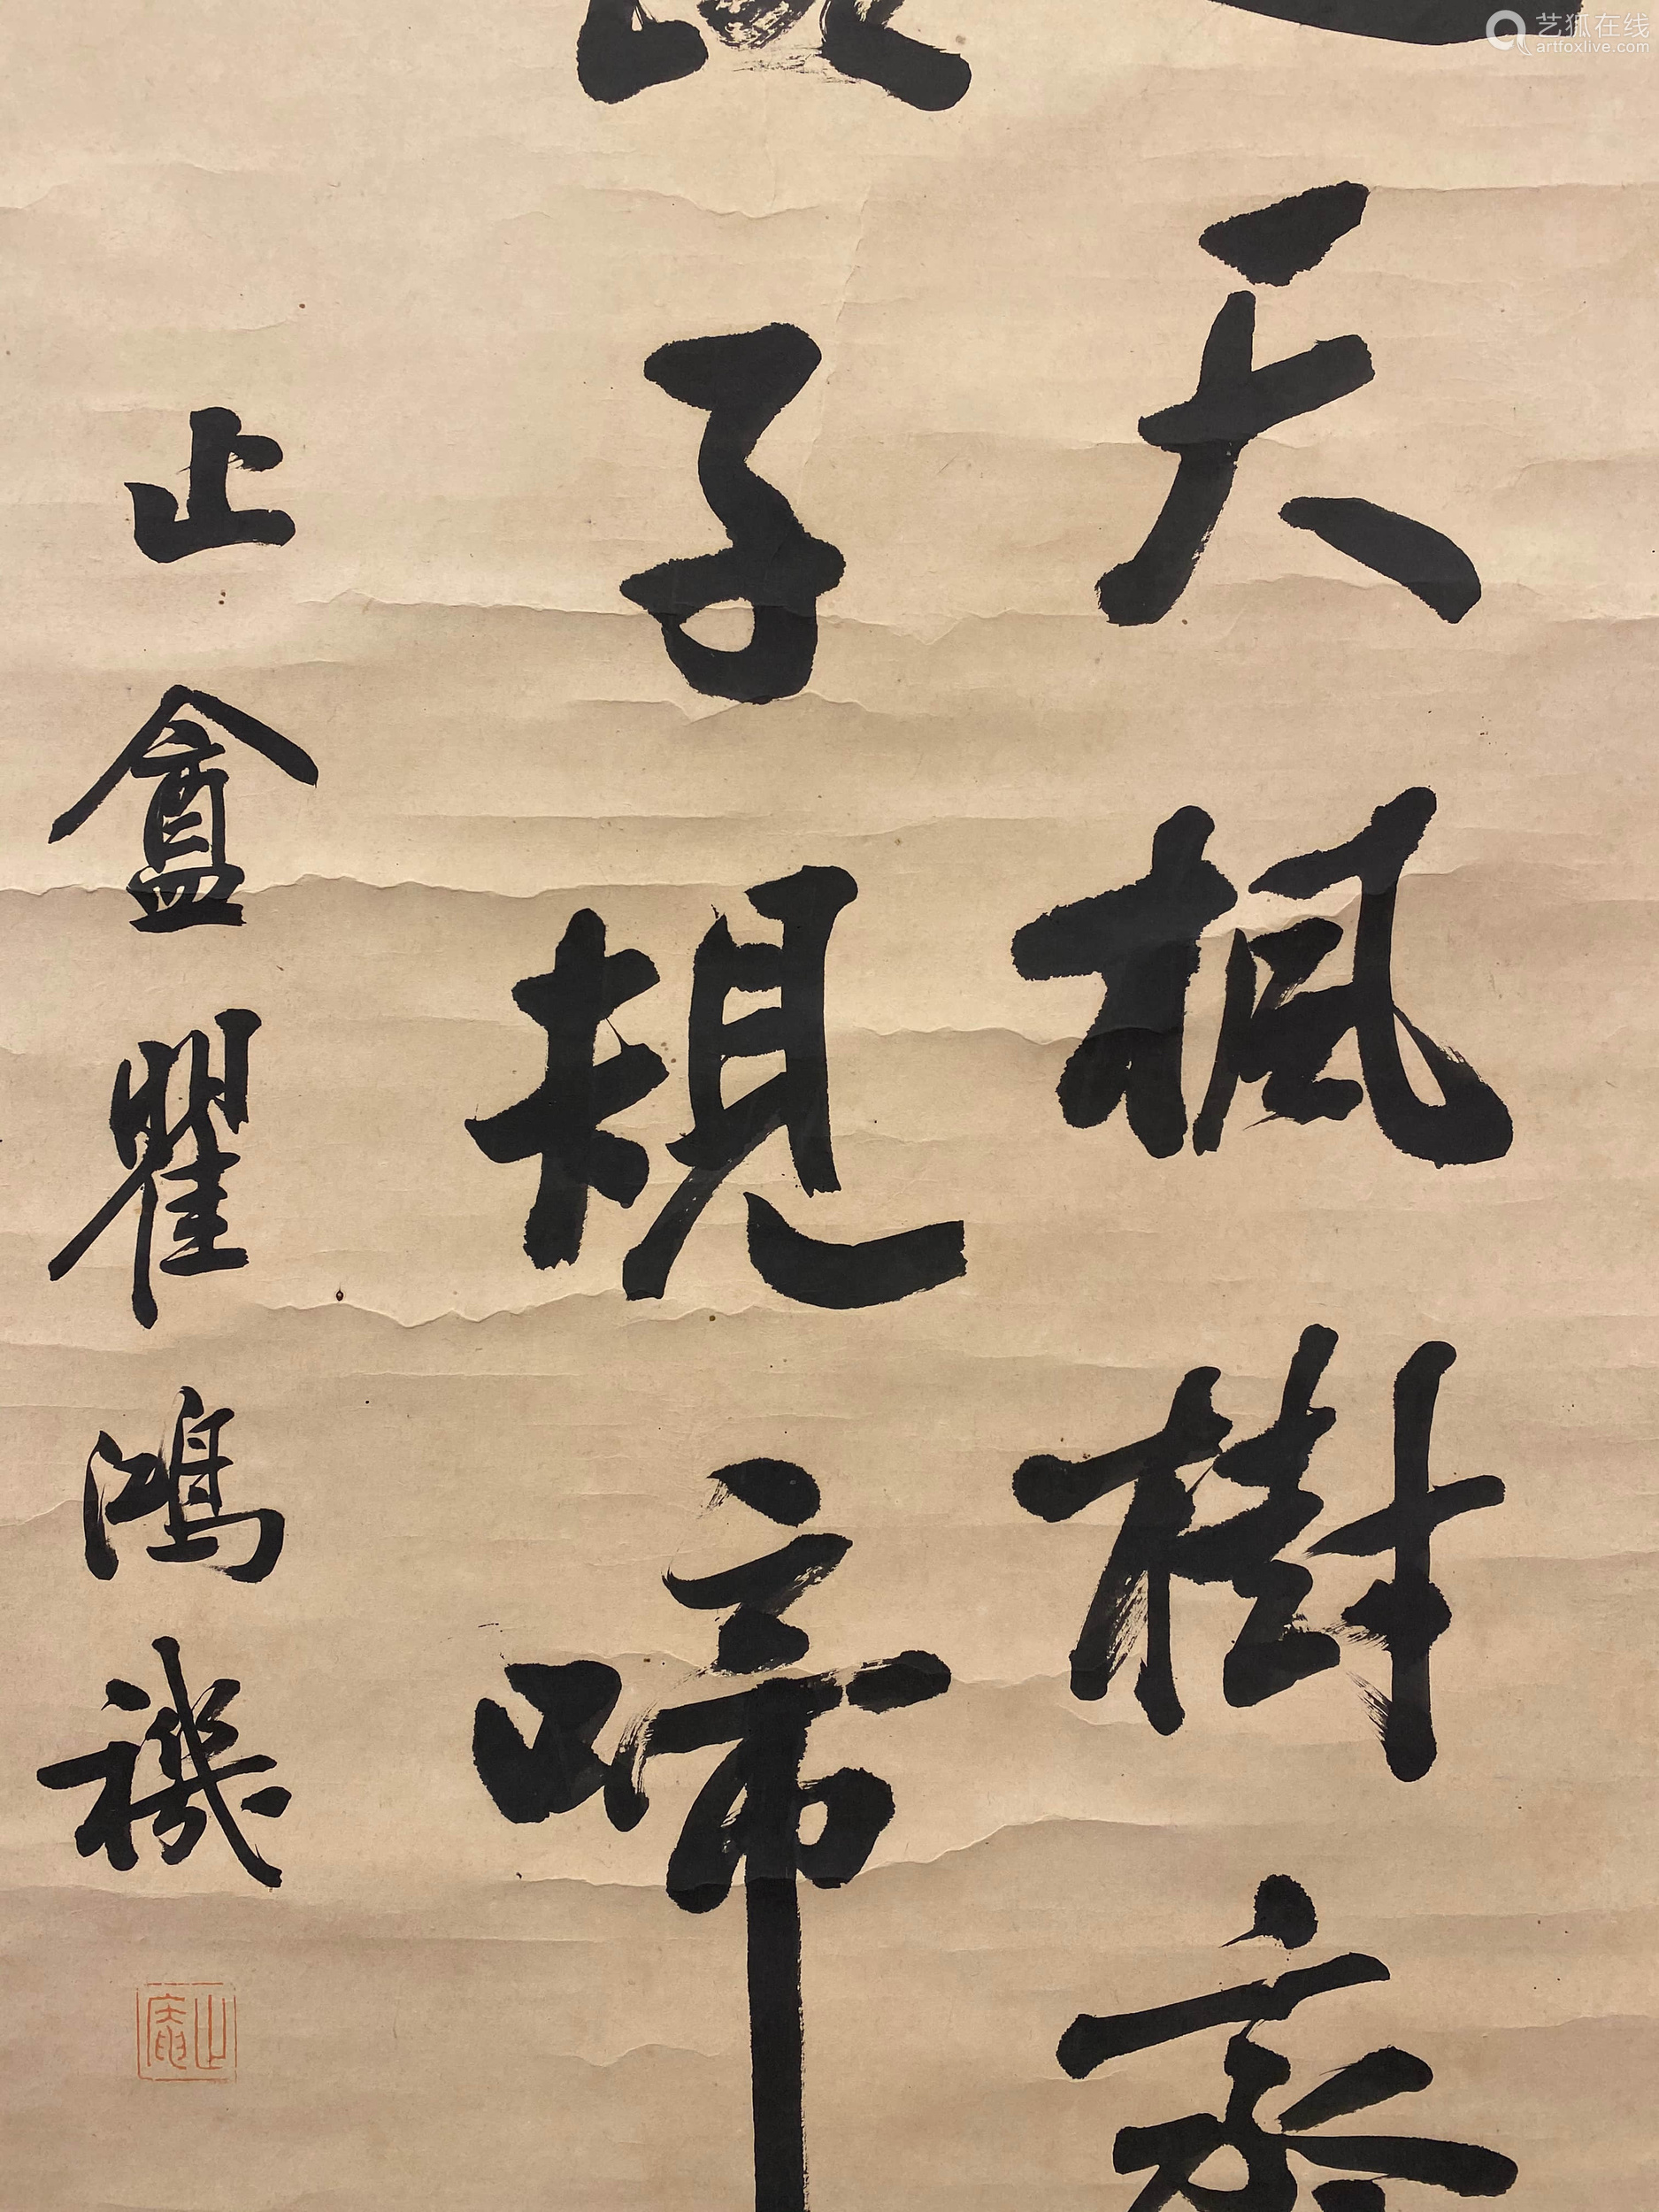 天楓樹
子規啼
止盦瞿鴻禨
止庵
艺狐在线
artfoxlive.com